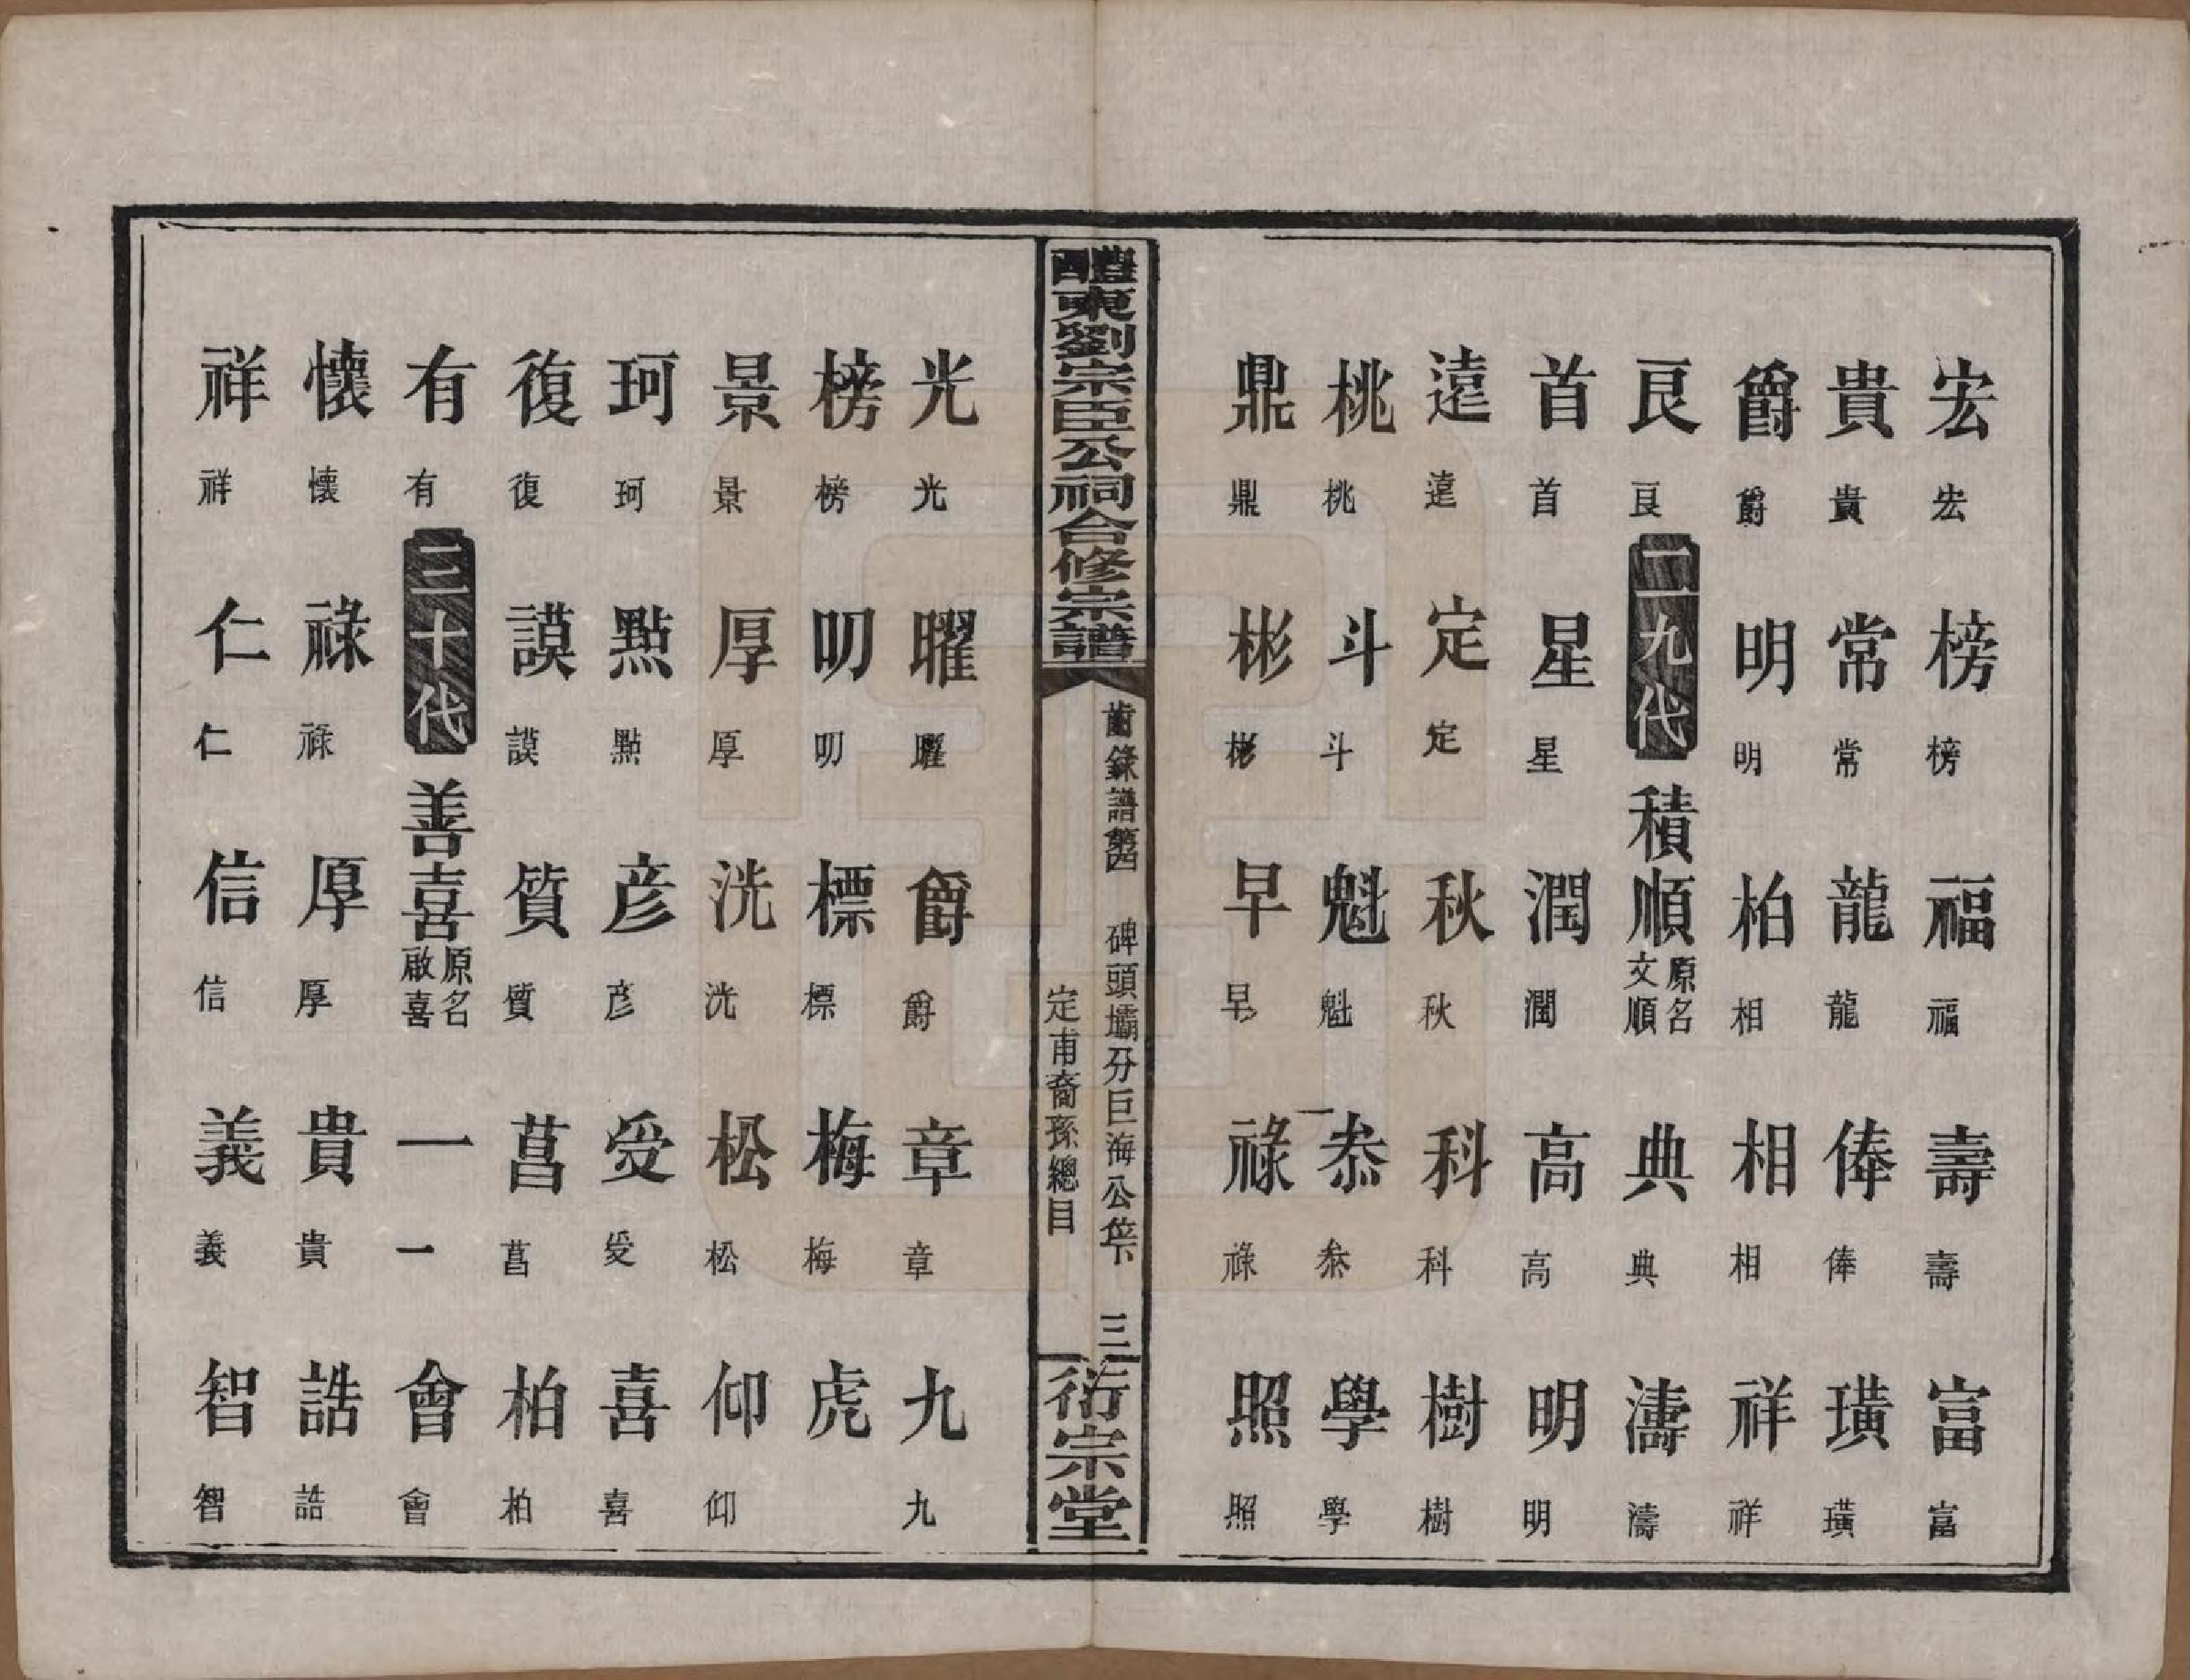 宏宏 榜榜 福福 壽壽 富富
貴貴 常常 龍龍 俸俸 璜璜
爵爵 明明 柏相 相相 祥祥
良良 二九代 積順原名文順 典典 濤濤
首首 星星 潤潤 高高 明明
遠遠 定定 秋秋 科科 樹樹
桃桃 斗斗 魁魁 叅叅 學學
鼎鼎 彬彬 早早 祿祿 照照
醴東劉宗臣公祠合修宗譜
齒錄譜第四 碑頭壩分巨海公位下 三
定甫裔孫總目
衍宗堂
光光 曜曜 爵爵 章章 九九
榜榜 叨叨 標標 梅梅 虎
景景 厚厚 洗洗 松松 仰仰
珂珂 點點 彥彥 受受 喜喜
復復 謨謨 質質 菖菖 柏柏
有有 三十代 善喜原名啟喜 一一 會會
懷懷 祿祿 厚厚 貴貴 誥誥
祥祥 仁仁 信信 義義 智智